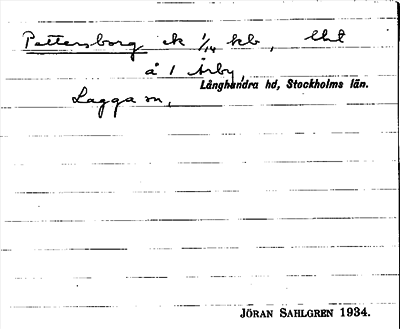 Pettersborg ek 1/14 kb, lht
å 1 Årby,
Långhundra hd, Stockholms län.
Lagga sn,
JÖRAN SAHLGREN 1934.